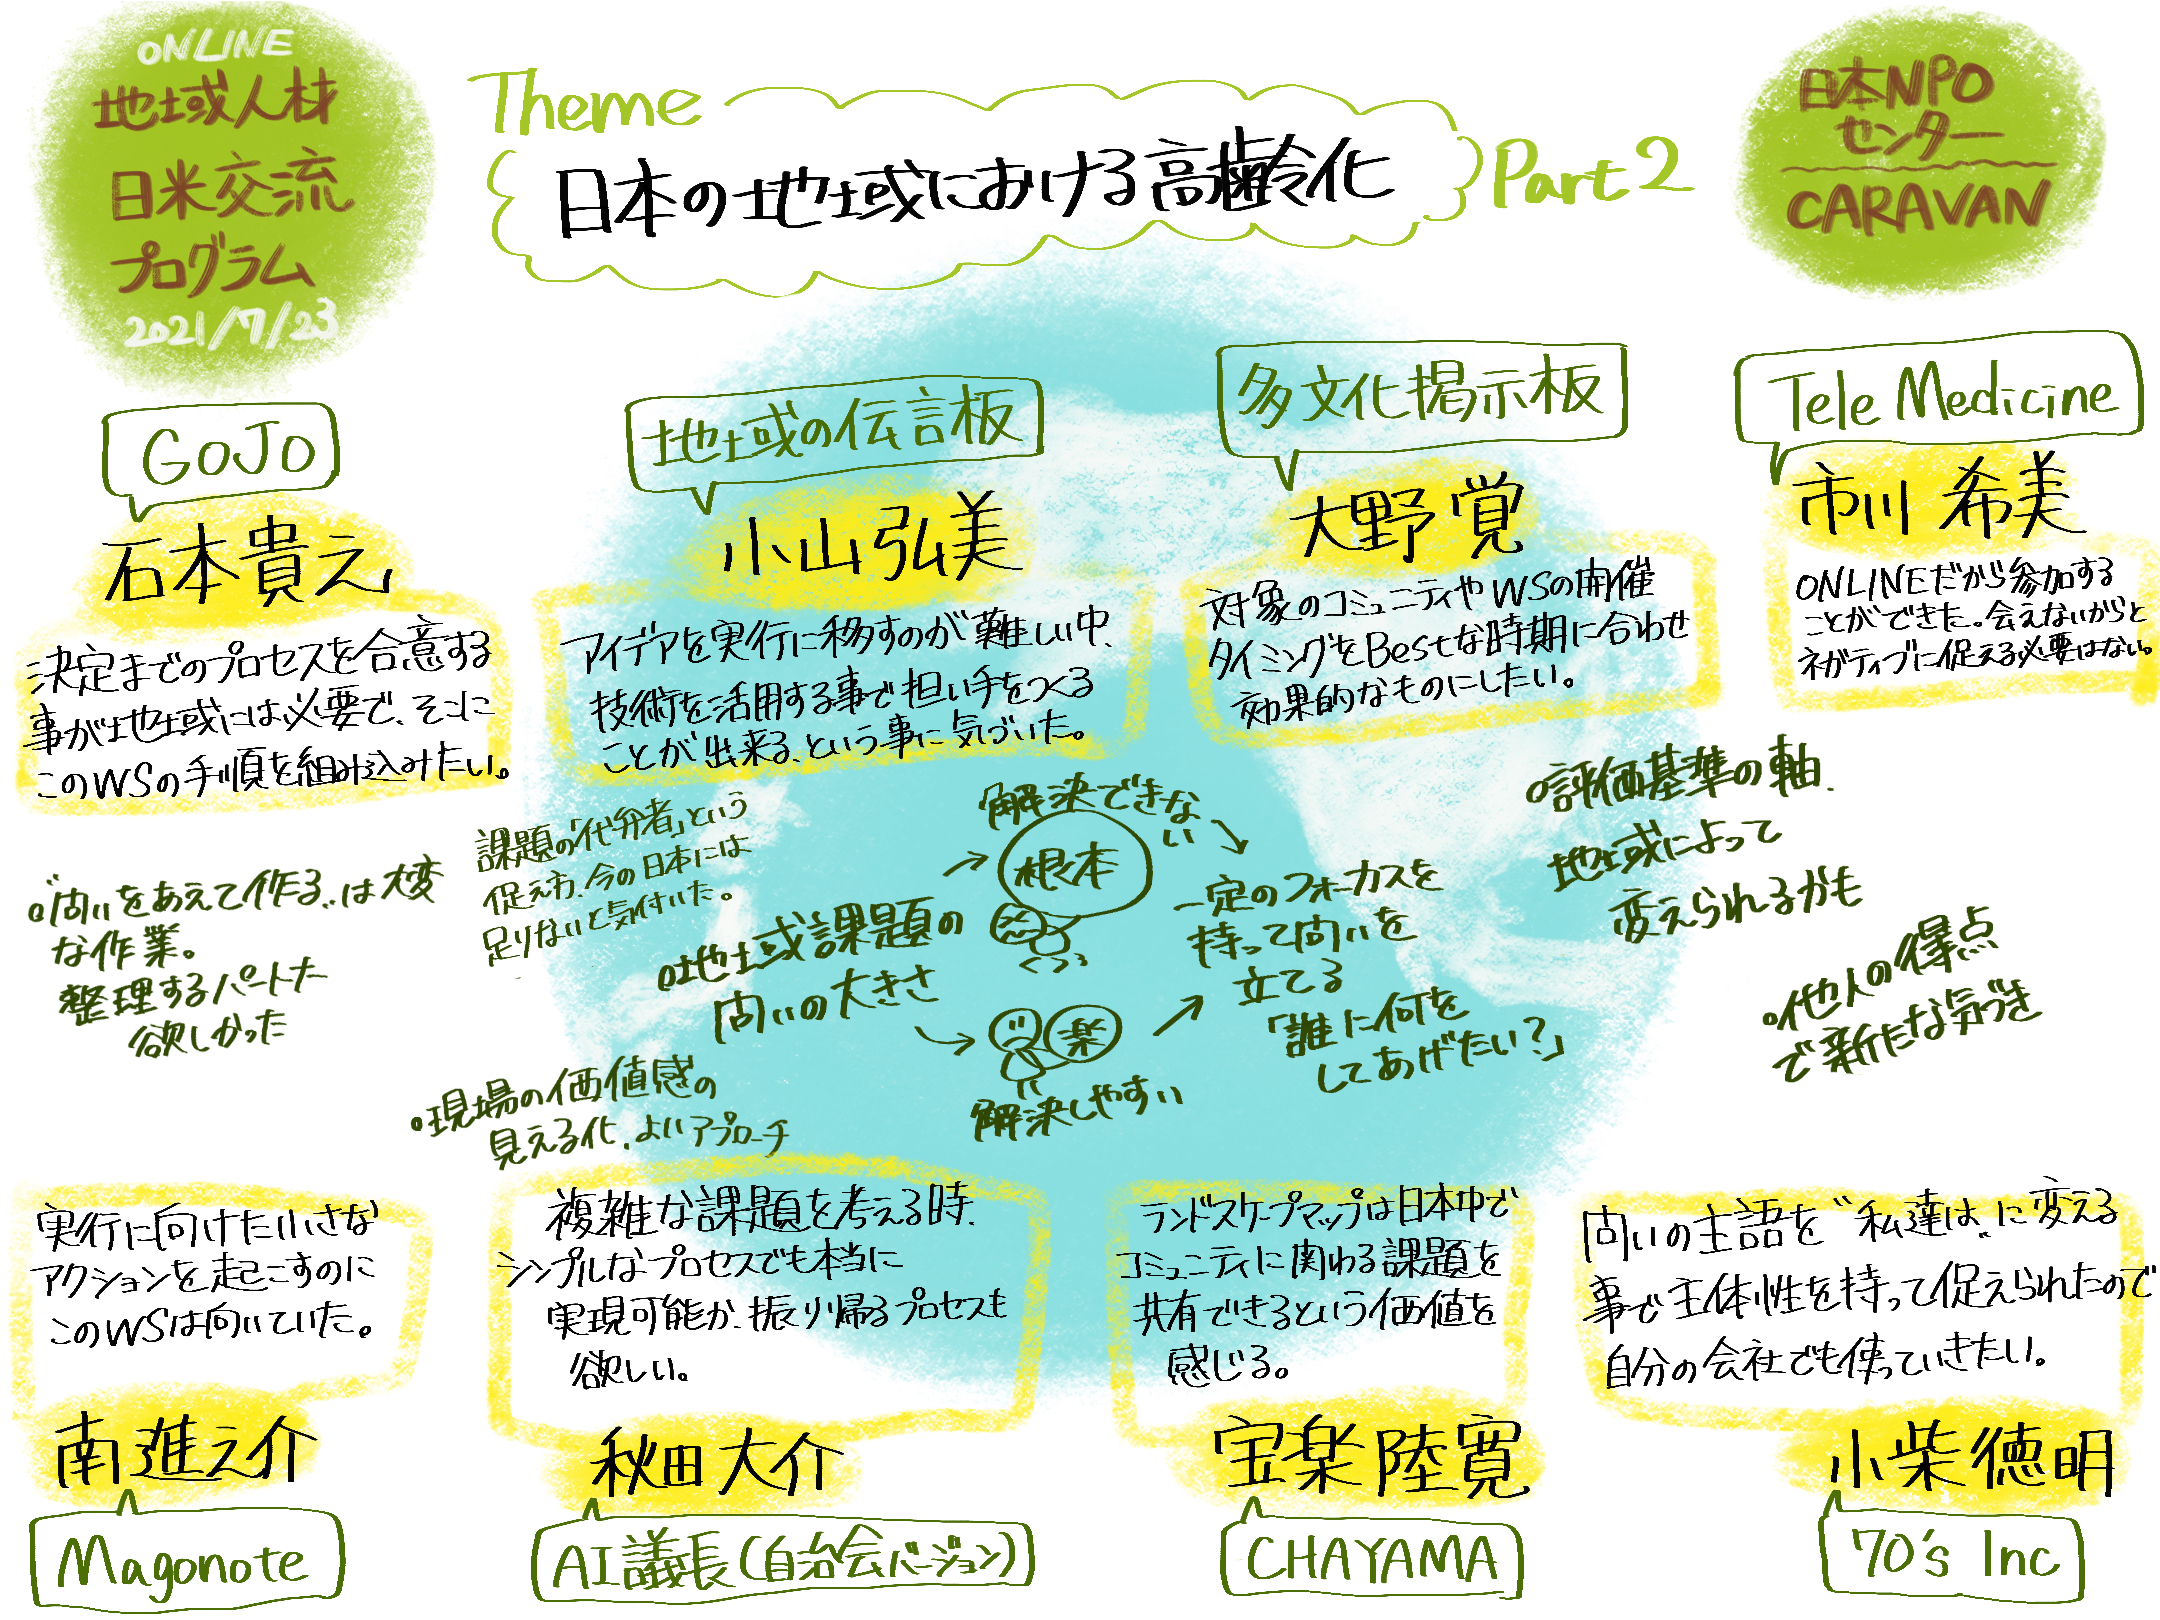 ONLINE
地域人材
日米交流
プログラム
2021/7/23
Theme
日本の地域における高齢化
Part2
日本NPO
センター
CARAVAN
GOJO
石本貴之
決定までのプロセスを合意する
事が地域には必要で、そこに
このWSの手順を組み込みたい。
地域の伝言板
小山弘美
アイデアを実行に移すのが難しい中、
技術を活用する事で担い手をつくる
ことが出来る、という事に気づいた。
多文化掲示板
大野覚
対象のコミュニティやWSの開催
タイミングをBestな時期に合わせ
効果的なものにしたい。
Tele Medicine
市川 希美
ONLINEだから参加する
ことができた。会えないからと
ネガティブに促える必要はない。
"問いをあえて作る"は大変
な作業。
整理するパートた
欲しかった
課題の「代弁者」という
促え方、今の日本には
足りないと気付いた。
地域課題の
問いの大きさ
解決できな
い
根本
楽
解決しやすい
一定のフォーカスを
持って問いを
立てる
「誰に何を
してあげたい?」
評価基準の軸、
地域によって
変えられるかも
他人の得点
で新たな気づき
現場の価値感の
見える化、よいアプローチ
実行に向けた小さな
アクションを起こすのに
このWSは向いていた。
南進之介
Magonote
複雑な課題を考える時、
シンプルなプロセスでも本当に
実現可能か、振り帰るプロセスも
欲しい。
秋田大介
AI議長(自治会バージョン)
ランドスケープマップは日本中で
コミュニティに関わる課題を
共有できるという価値を
感じる。
宝楽陸寛
CHAYAMA
問いの主語を"私達は"に変える
事で主体性を持って促えられたので
自分の会社でも使っていきたい。
小柴徳明
70's Inc